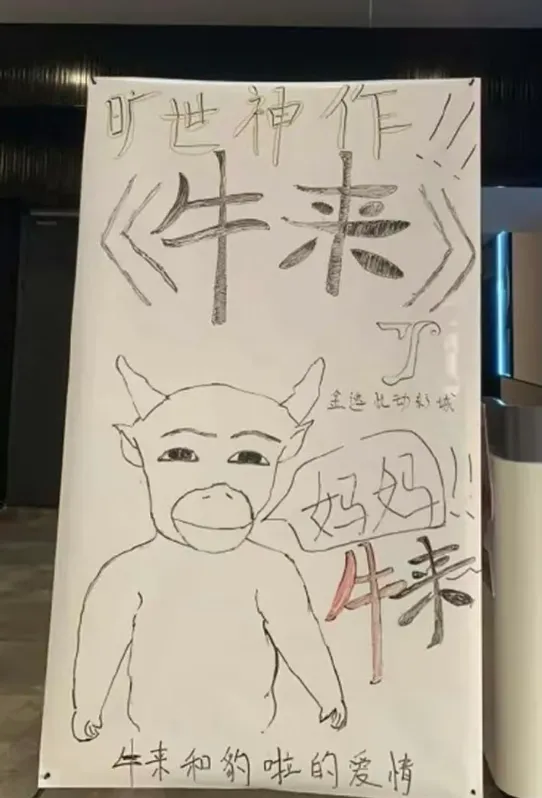 旷世神作!!!
《牛来》
了
金逸机动影城
妈妈!!
牛来
牛来和豹啦的爱情